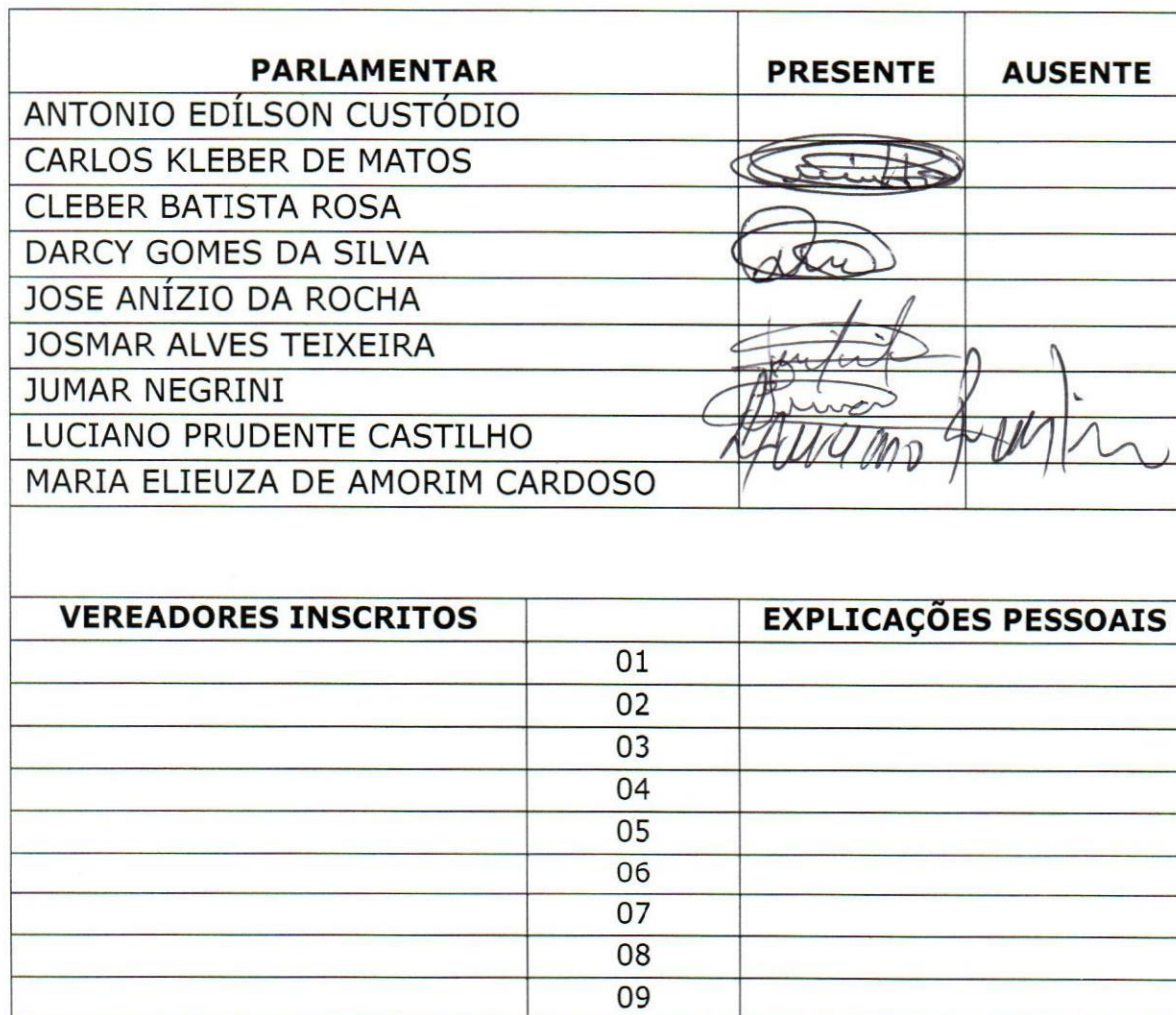 PARLAMENTAR PRESENTE AUSENTE
ANTONIO EDÍLSON CUSTÓDIO
CARLOS KLEBER DE MATOS
CLEBER BATISTA ROSA
DARCY GOMES DA SILVA
JOSE ANÍZIO DA ROCHA
JOSMAR ALVES TEIXEIRA
JUMAR NEGRINI
LUCIANO PRUDENTE CASTILHO
MARIA ELIEUZA DE AMORIM CARDOSO
VEREADORES INSCRITOS EXPLICAÇÕES PESSOAIS
01
02
03
04
05
06
07
08
09